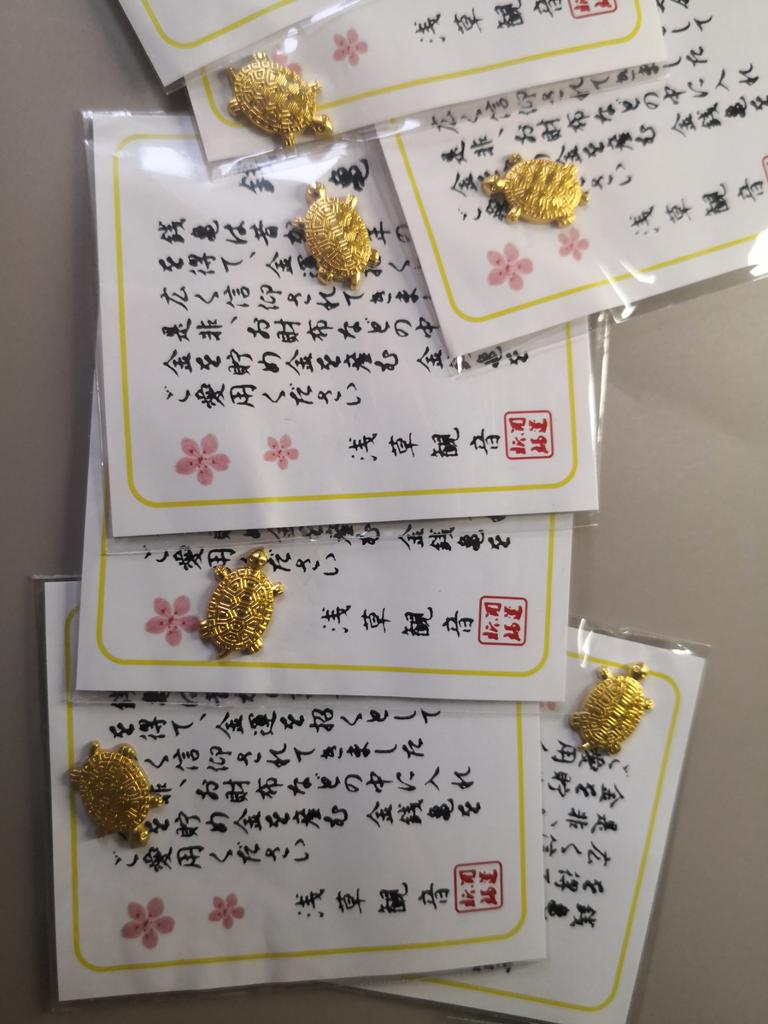 浅草観音
して
した
広く信仰されて
是非、お財布などの中に入れ
金を産む 金銭亀を
ご ださい
浅草観音
銭 亀
銭亀は昔か 年の
を得て、金運 招く
広く信仰されてきま
是非、お財布などの中
金を貯め金を産む 金 亀を
ご愛用ください
浅草観音
金を産む 金銭亀を
ご愛用ください
浅草観音
を得て、金運を招くとして
く信仰されてきました
非、お財布などの中に入れ
を貯め金を産む 金銭亀を
ご愛用ください
浅草観音
銭亀
を得て
広く信
是非、
金を貯
ご愛用